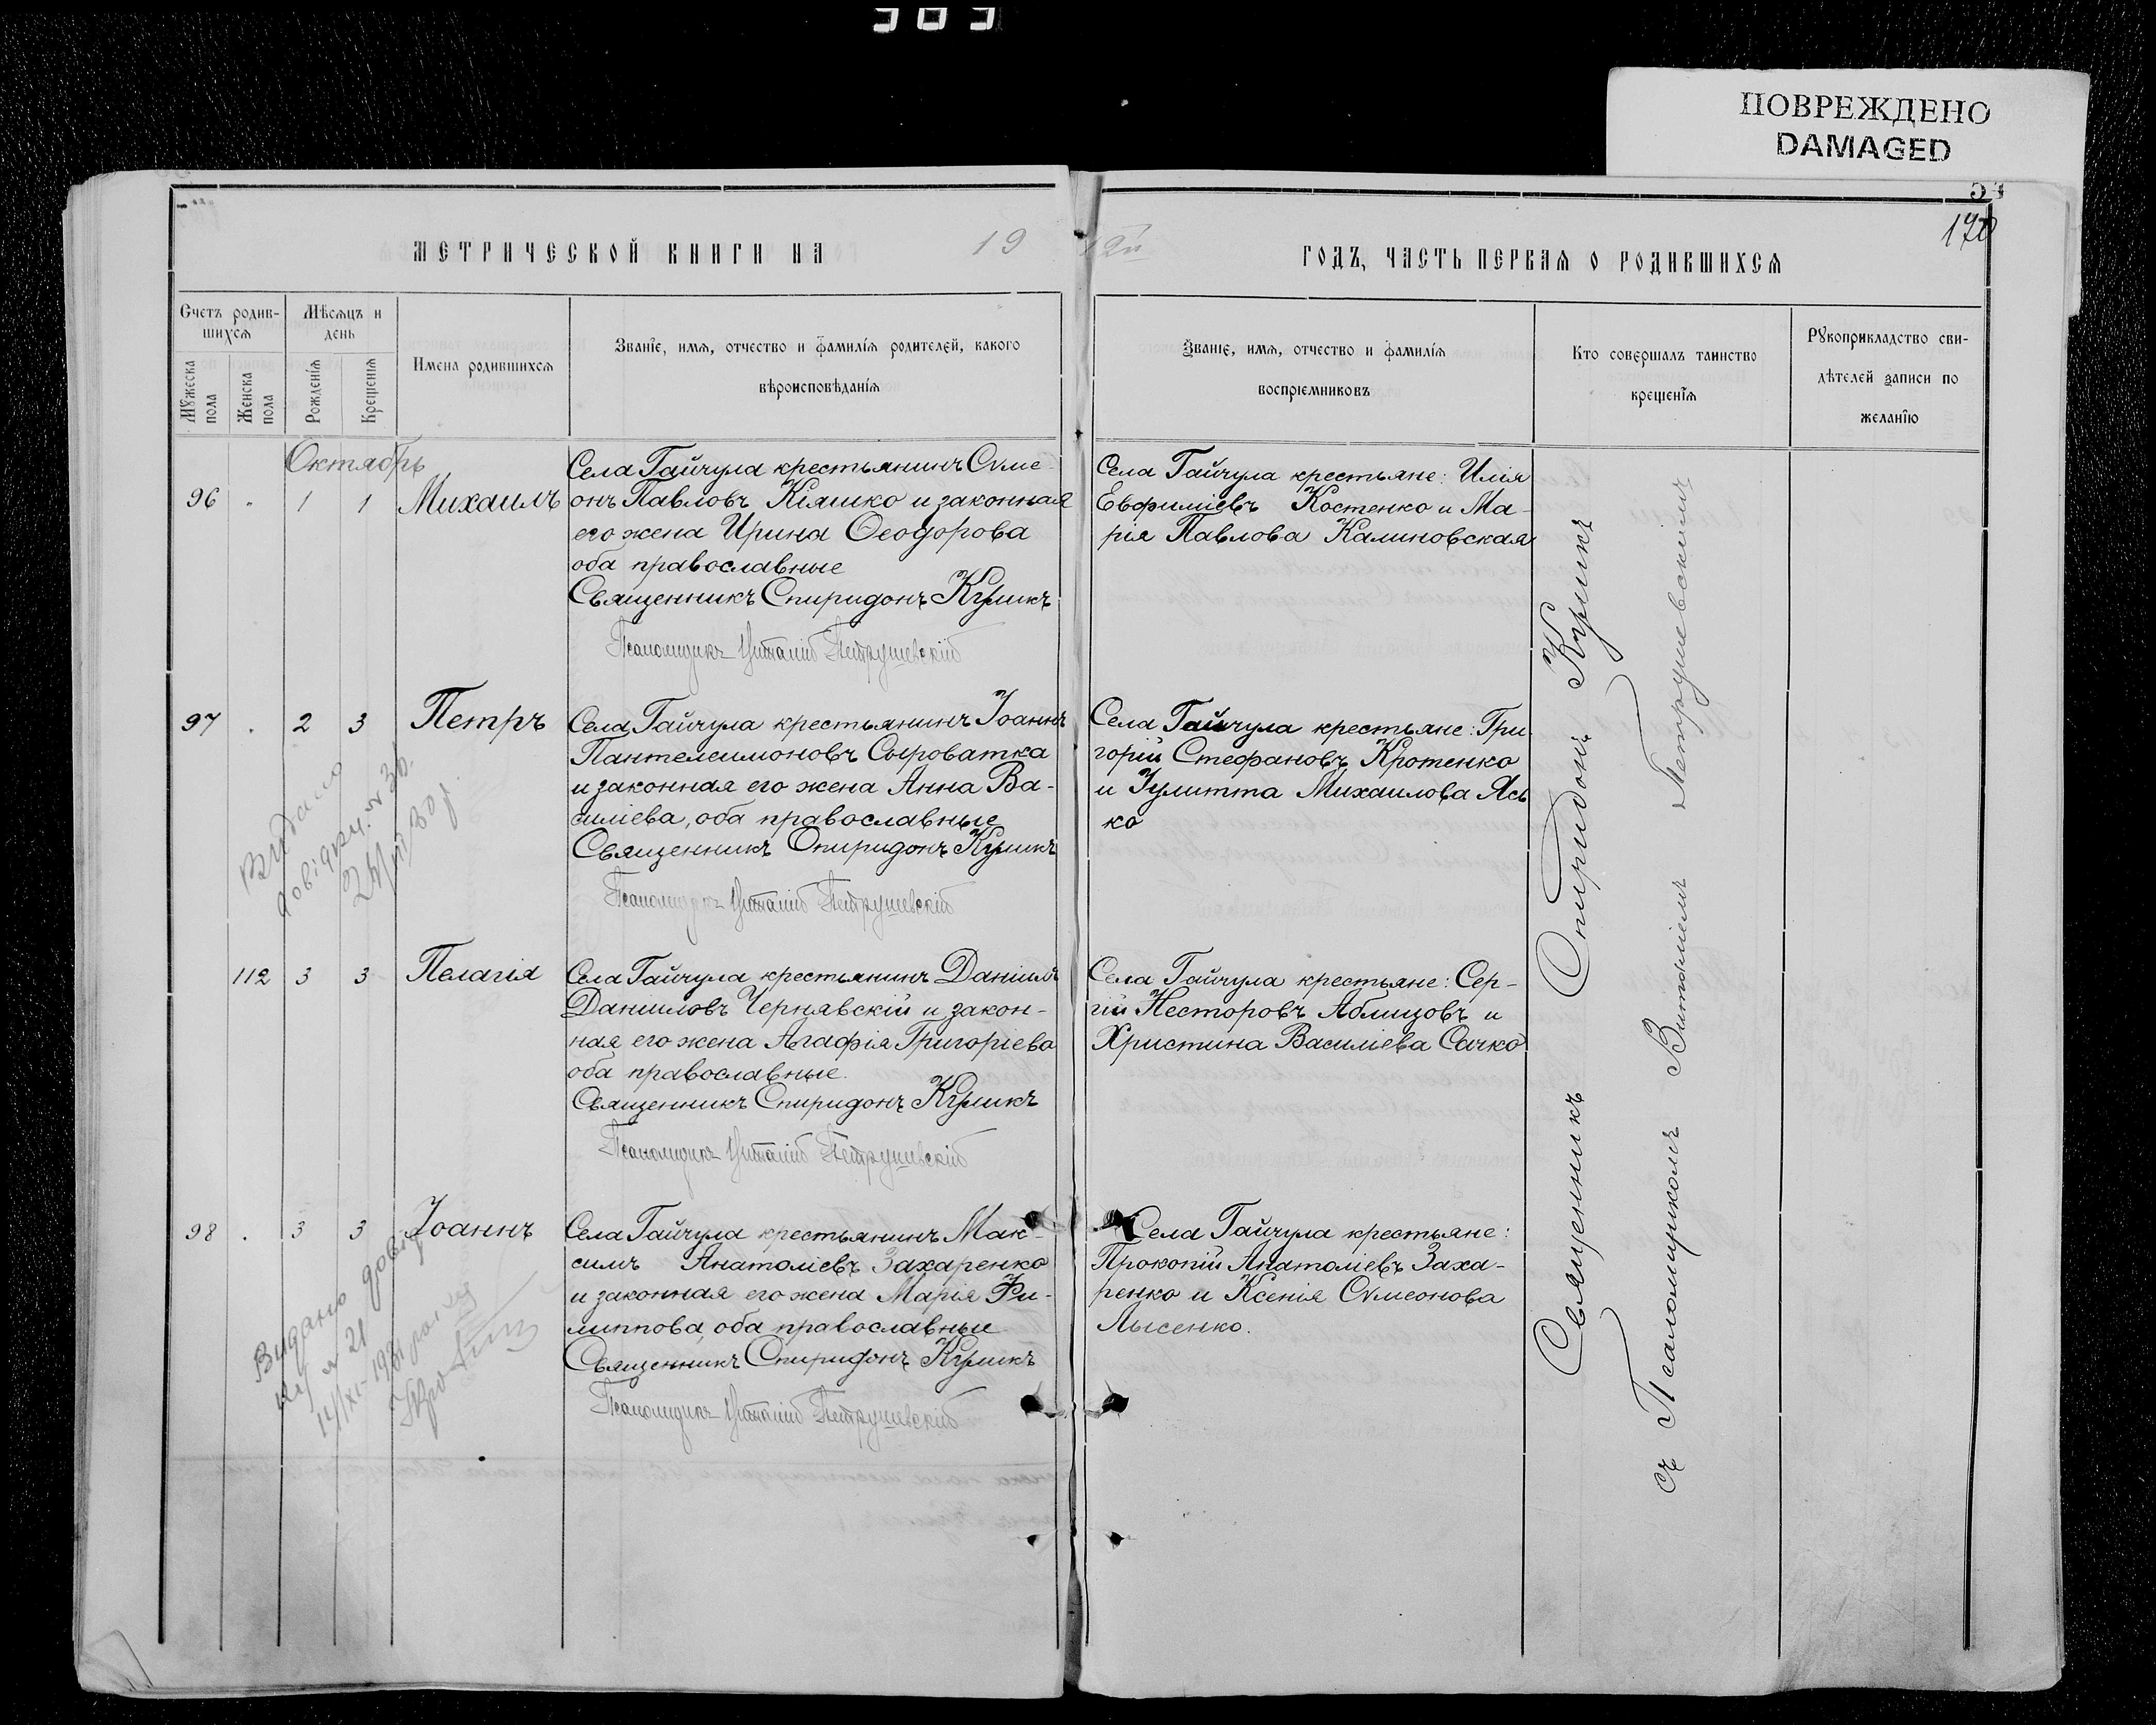 ПОВРЕЖДЕНО
DAMAGED
170
МЕТРИЧЕСКОЙ КНИГИ НА 19
12й ГОДЪ, ЧАСТЬ ПЕРВАЯ О РОДИВШИХСЯ
Счетъ родив-
шихся
Мѣсяцъ и
день
Мужеска
пола
Женска
пола
Рожденія
Крещенія
Имена родившихся
Званіе, имя, отчество и фамилія родителей, какого
вѣроисповѣданія
Званіе, имя, отчество и фамилія
воспріемниковъ
Кто совершалъ таинство
крещенія
Рукоприкладство сви-
дѣтелей записи по
желанію
Октябрь
96 1 1 Михаилъ
Села Гайчула крестьянинъ Сѵме-
онъ Павловъ Кіяшко и законная
его жена Ирина Ѳеодорова
оба православные
Священникъ Спиридонъ Куликъ
Псаломщикъ Виталій Петрушевскій
Села Гайчула крестьяне: Илія
Евфиміевъ Костенко и Ма-
рія Павлова Калиновская
97 2 3 Петръ
Села Гайчула крестьянинъ Іоаннъ
Пантелеимоновъ Сыроватка
и законная его жена Анна Ва-
силіева, оба православные
Священникъ Спиридонъ Куликъ
Псаломщикъ Виталій Петрушевскій
Села Гайчула крестьяне: Гри-
горій Стефановъ Кротенко
и Іулитта Михаилова Ясь
ко
Видано
довідку
112 3 3 Пелагія
Села Гайчула крестьянинъ Даніилъ
Даніиловъ Чернявскій и закон-
ная его жена Агафія Григоріева
оба православные.
Священникъ Спиридонъ Куликъ
Псаломщикъ Виталій Петрушевскій
Села Гайчула крестьяне: Сер-
гій Несторовъ Аблицовъ и
Христина Василіева Сачко
98 3 3 Іоаннъ
Села Гайчула крестьянинъ Мак-
симъ Анатоліевъ Захаренко
и законная его жена Марія Фи-
липпова, оба православные
Священникъ Спиридонъ Куликъ
Псаломщикъ Виталій Петрушевскій
Села Гайчула крестьяне:
Прокопій Анатоліевъ Заха-
ренко и Ксенія Сѵмеонова
Лысенко.
Видано довід
ку № 21
Священникъ Спиридонъ Куликъ
съ Псаломщикомъ Виталіемъ Петрушевскимъ